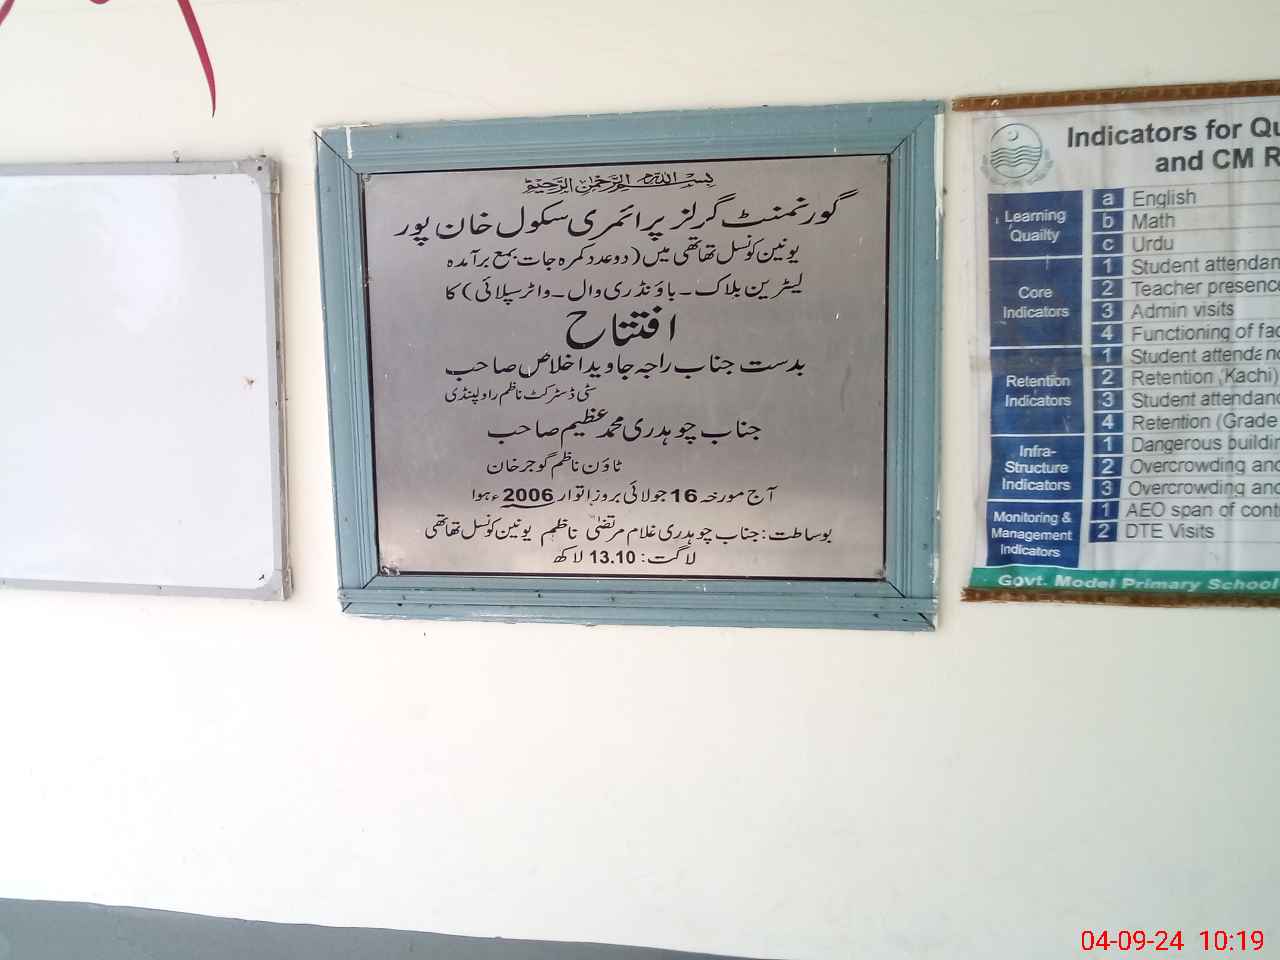 بسم اللہ الرحمن الرحیم
گورنمنٹ گرلز پرائمری سکول خان پور
یونین کونسل تھاتھی میں (دو عدد کمرہ جات بمع برآمدہ
لیٹرین بلاک ۔ باؤنڈری وال ۔ واٹر سپلائی) کا
افتتاح
بدست جناب راجہ جاوید اخلاص صاحب
سٹی ڈسٹرکٹ ناظم راولپنڈی
جناب چوہدری محمد عظیم صاحب
ٹاؤن ناظم گوجر خان
آج مورخہ 16 جولائی بروز اتوار 2006ء ہوا
بوساطت: جناب چوہدری غلام مرتضیٰ ناظم یونین کونسل تھاتھی
لاگت: 13.10 لاکھ
Indicators for Qu
and CM R
Learning Quailty
a English
b Math
c Urdu
Core Indicators
1 Student attendan
2 Teacher presence
3 Admin visits
4 Functioning of fac
Retention Indicators
1 Student attendanc
2 Retention (Kachi)
3 Student attendanc
4 Retention (Grade
Infra-Structure Indicators
1 Dangerous buildin
2 Overcrowding and
3 Overcrowding and
Monitoring & Management Indicators
1 AEO span of contr
2 DTE Visits
Govt. Model Primary School
04-09-24 10:19